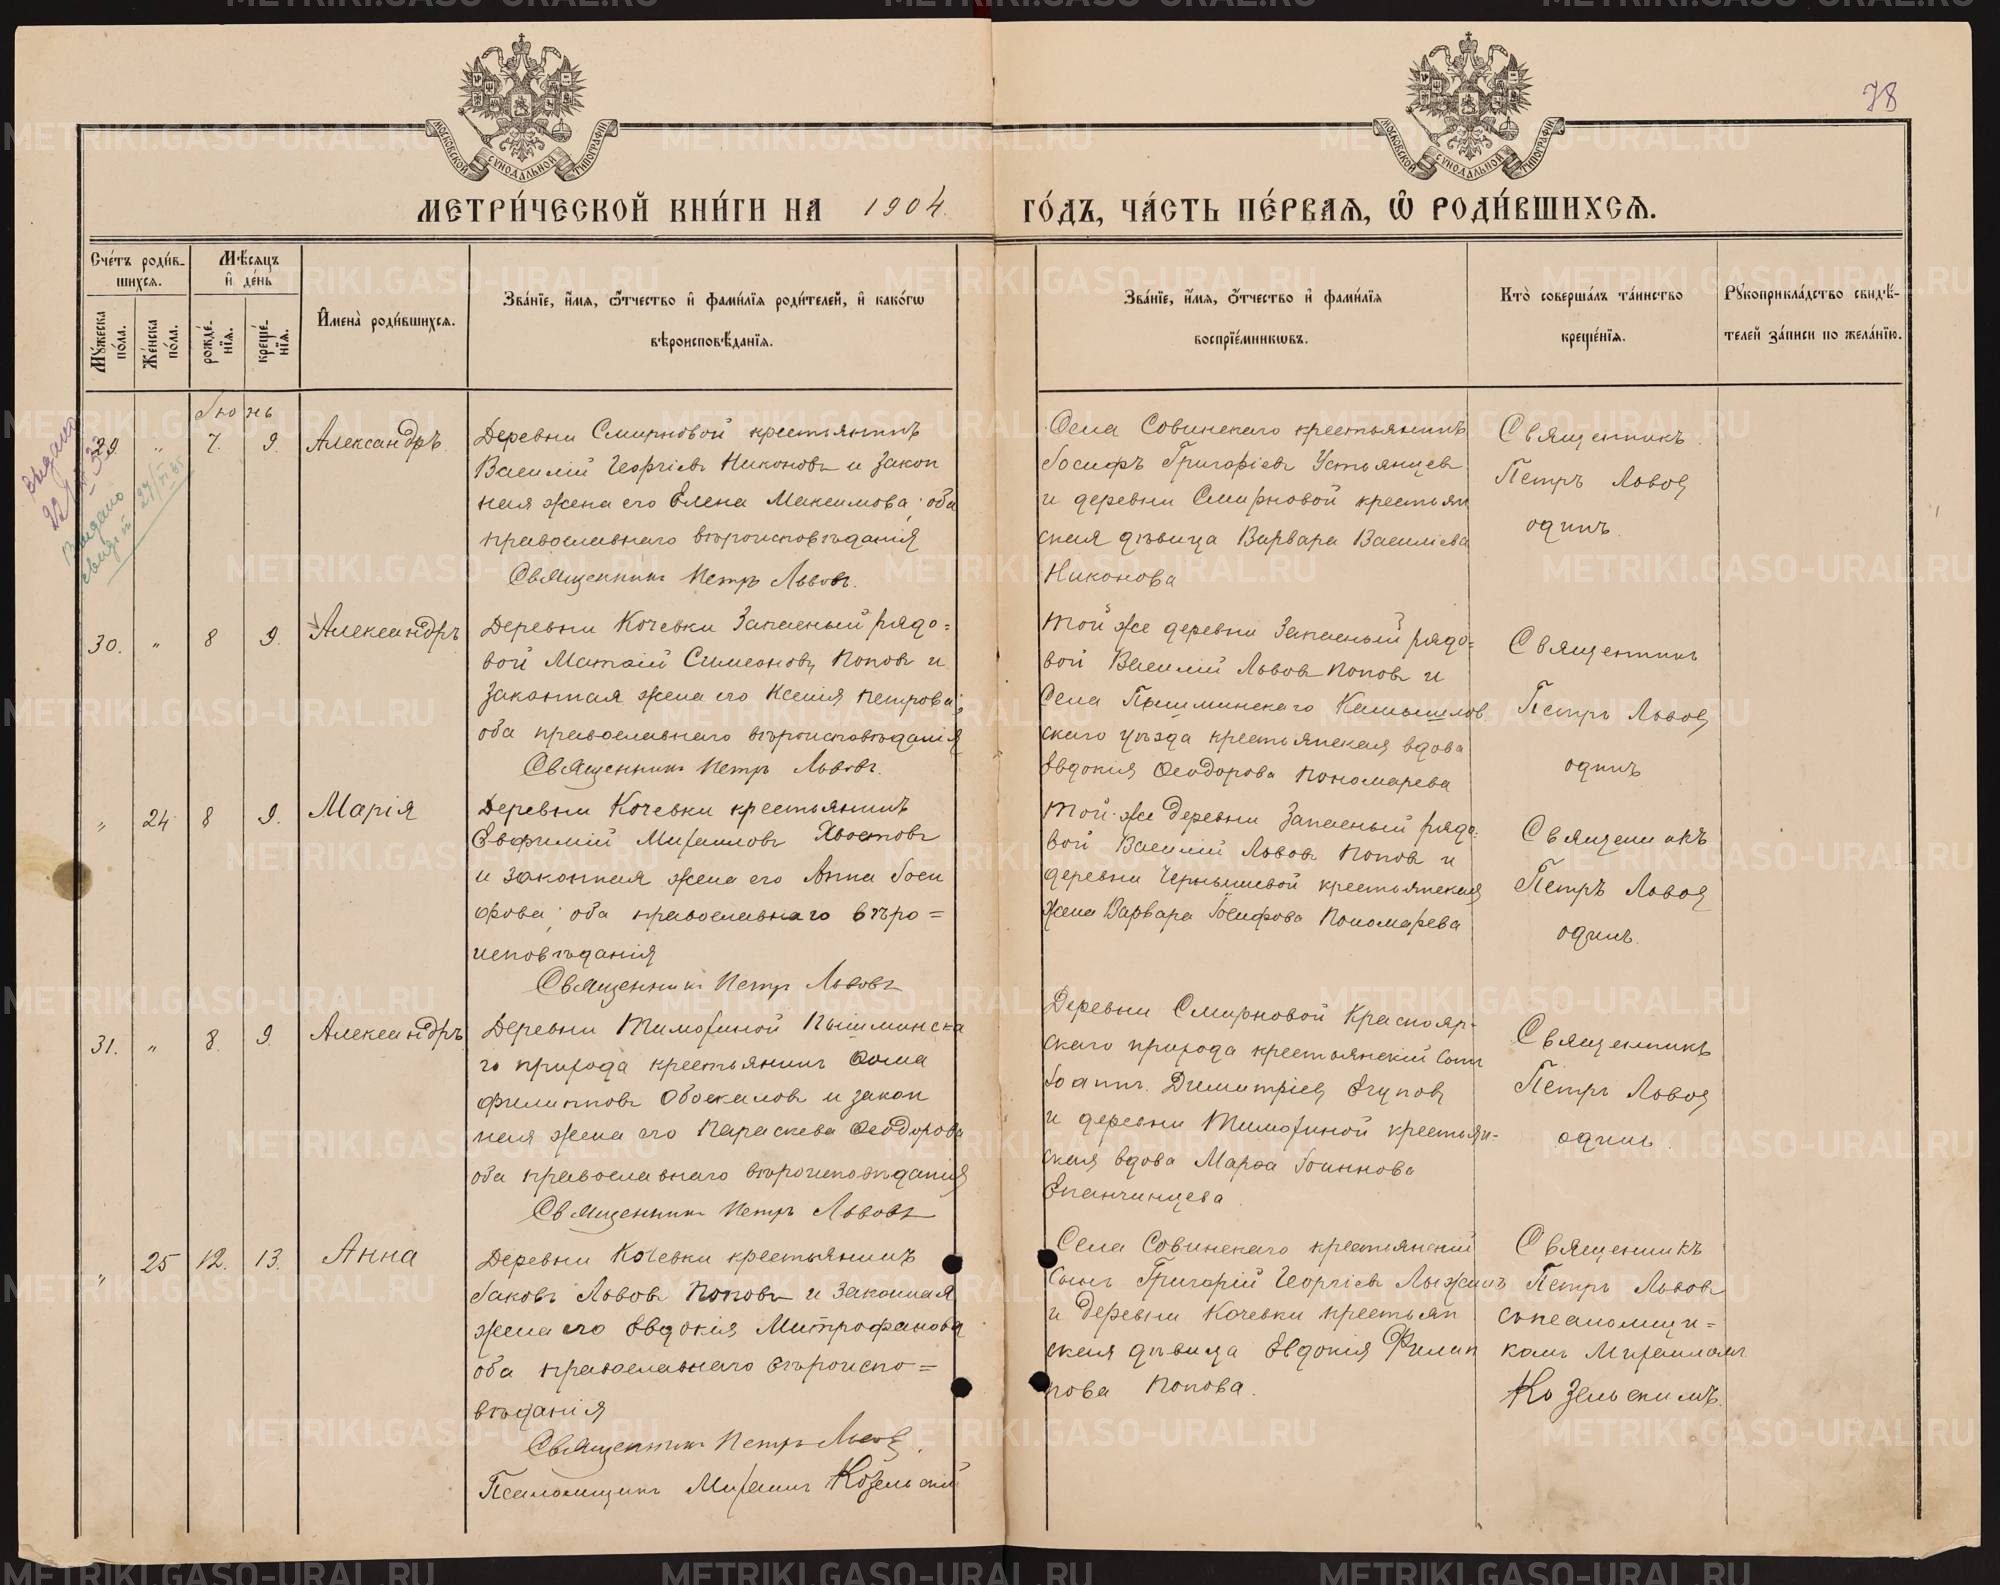 78
МОСКОВСКОЙ СѴНОДАЛЬНОЙ ТИПОГРАФІИ
МОСКОВСКОЙ СѴНОДАЛЬНОЙ ТИПОГРАФІИ
МЕТРИ́ЧЕСКОЙ КНИ́ГИ НА 1904 ГО́ДЪ, ЧА́СТЬ ПЕ́РВАѦ, Ѽ РОДИ́ВШИХСѦ.
Сче́тъ роди́в-
шихсѧ.
Мꙋ́жеска
по́ла.
Же́нска
по́ла.
Мѣ́сѧцъ
и҆ де́нь
рожде́-
нїѧ.
креще́-
нїѧ.
И҆мена̀ роди́вшихсѧ.
Зва́нїе, и҆́мѧ, ѻ҆́тчество и҆ фами́лїѧ роди́телей, и҆ како́гѡ
вѣроисповѣ́данїѧ.
Зва́нїе, и҆́мѧ, ѻ҆́тчество и҆ фами́лїѧ
воспрїе́мникѡвъ.
Кто̀ соверша́лъ та́инство
креще́нїѧ.
Рꙋкоприкла́дство свидѣ́-
телей за́писи по жела́нїю.
Іюнь
29. " 7. 9. Александръ
Деревни Смирновой крестьянинъ
Василій Георгіевъ Никоновъ и закон
ная жена его Елена Максимова; оба
православнаго вѣроисповѣданія
Священникъ Петръ Львовъ.
Села Совинскаго крестьянинъ
Іосифъ Григорьевъ Устьянцевъ
и деревни Смирновой крестьян
ская дѣвица Варвара Василіева
Никонова
Священникъ
Петръ Львовъ
одинъ.
Выдано
22/
Выдано
30. " 8 9. Александръ
Деревни Кочевки Запасный рядо=
вой Матѳій Симеоновъ Поповъ и
законная жена его Ксенія Петрова;
оба православнаго вѣроисповѣданія
Священникъ Петръ Львовъ.
Той же деревни Запасный рядо=
вой Василій Львовъ Поповъ и
Села Пышминскаго Камышлов
скаго уѣзда крестьянская вдова
Евдокія Ѳеодорова Пономарева
Священникъ
Петръ Львовъ
одинъ
" 24 8 9. Марія
Деревни Кочевки крестьянинъ
Евфимій Михаиловъ Хвостовъ
и законная жена его Анна Іоси
фова; оба православнаго вѣро=
исповѣданія
Священникъ Петръ Львовъ
Той-же деревни Запасный рядо-
вой Василій Львовъ Поповъ и
деревни Чернышевой крестьянская
жена Варвара Іосифова Пономарева
Священникъ
Петръ Львовъ
одинъ.
31. " 8. 9. Александръ
Деревни Тимохиной Пышминска
го прихода крестьянинъ Ѳома
Филипповъ Обоскаловъ и закон
ная жена его Параскева Ѳеодорова
оба православнаго вѣроисповѣданія
Священникъ Петръ Львовъ
Деревни Смирновой Краснояр-
скаго прихода крестьянскій сынъ
Іоаннъ Димитріевъ Ягуповъ
и деревни Тимохиной крестьян-
ская вдова Марѳа Іоаннова
Епанчинцева
Священникъ
Петръ Львовъ
одинъ.
" 25 12. 13. Анна
Деревни Кочевки крестьянинъ
Іаковъ Львовъ Поповъ и законная
жена его Евдокія Митрофанова
оба православнаго вѣроиспо=
вѣданія
Священникъ Петръ Львовъ.
Псаломщикъ Михаилъ Козельскій
Села Совинскаго крестьянскій
сынъ Григорій Георгіевъ Лыжинъ
и деревни Кочевки крестьян
ская дѣвица Евдокія Филип
пова Попова.
Священникъ
Петръ Львовъ
съ псаломщи=
комъ Михаиломъ
Козельскимъ.